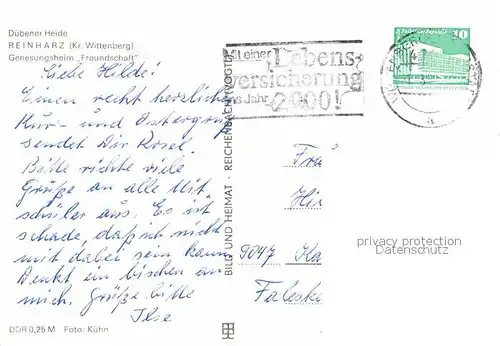 Dübener Heide
REINHARZ (Kr. Wittenberg)
Genesungsheim „Freundschaft"
Liebe Hilde!
Einen recht herzlichen
Kur- und Ostergruß
sendet Dir Rosel.
Bitte richte viele
Grüße an alle Mit
schüler aus. Es ist
schade, daß ich nicht
mit dabei sein kann
Denkt ein bischen an
mich. Grüße bitte
Ilse
DDR 0,25 M Foto: Kühn
BILD UND HEIMAT · REICHENBACH (VOGTL
Mit einer
Lebens
versicherung
ins Jahr
2000!
10
a
Fra
Hi
9047 Ka
Falesk
privacy protection
Datenschutz